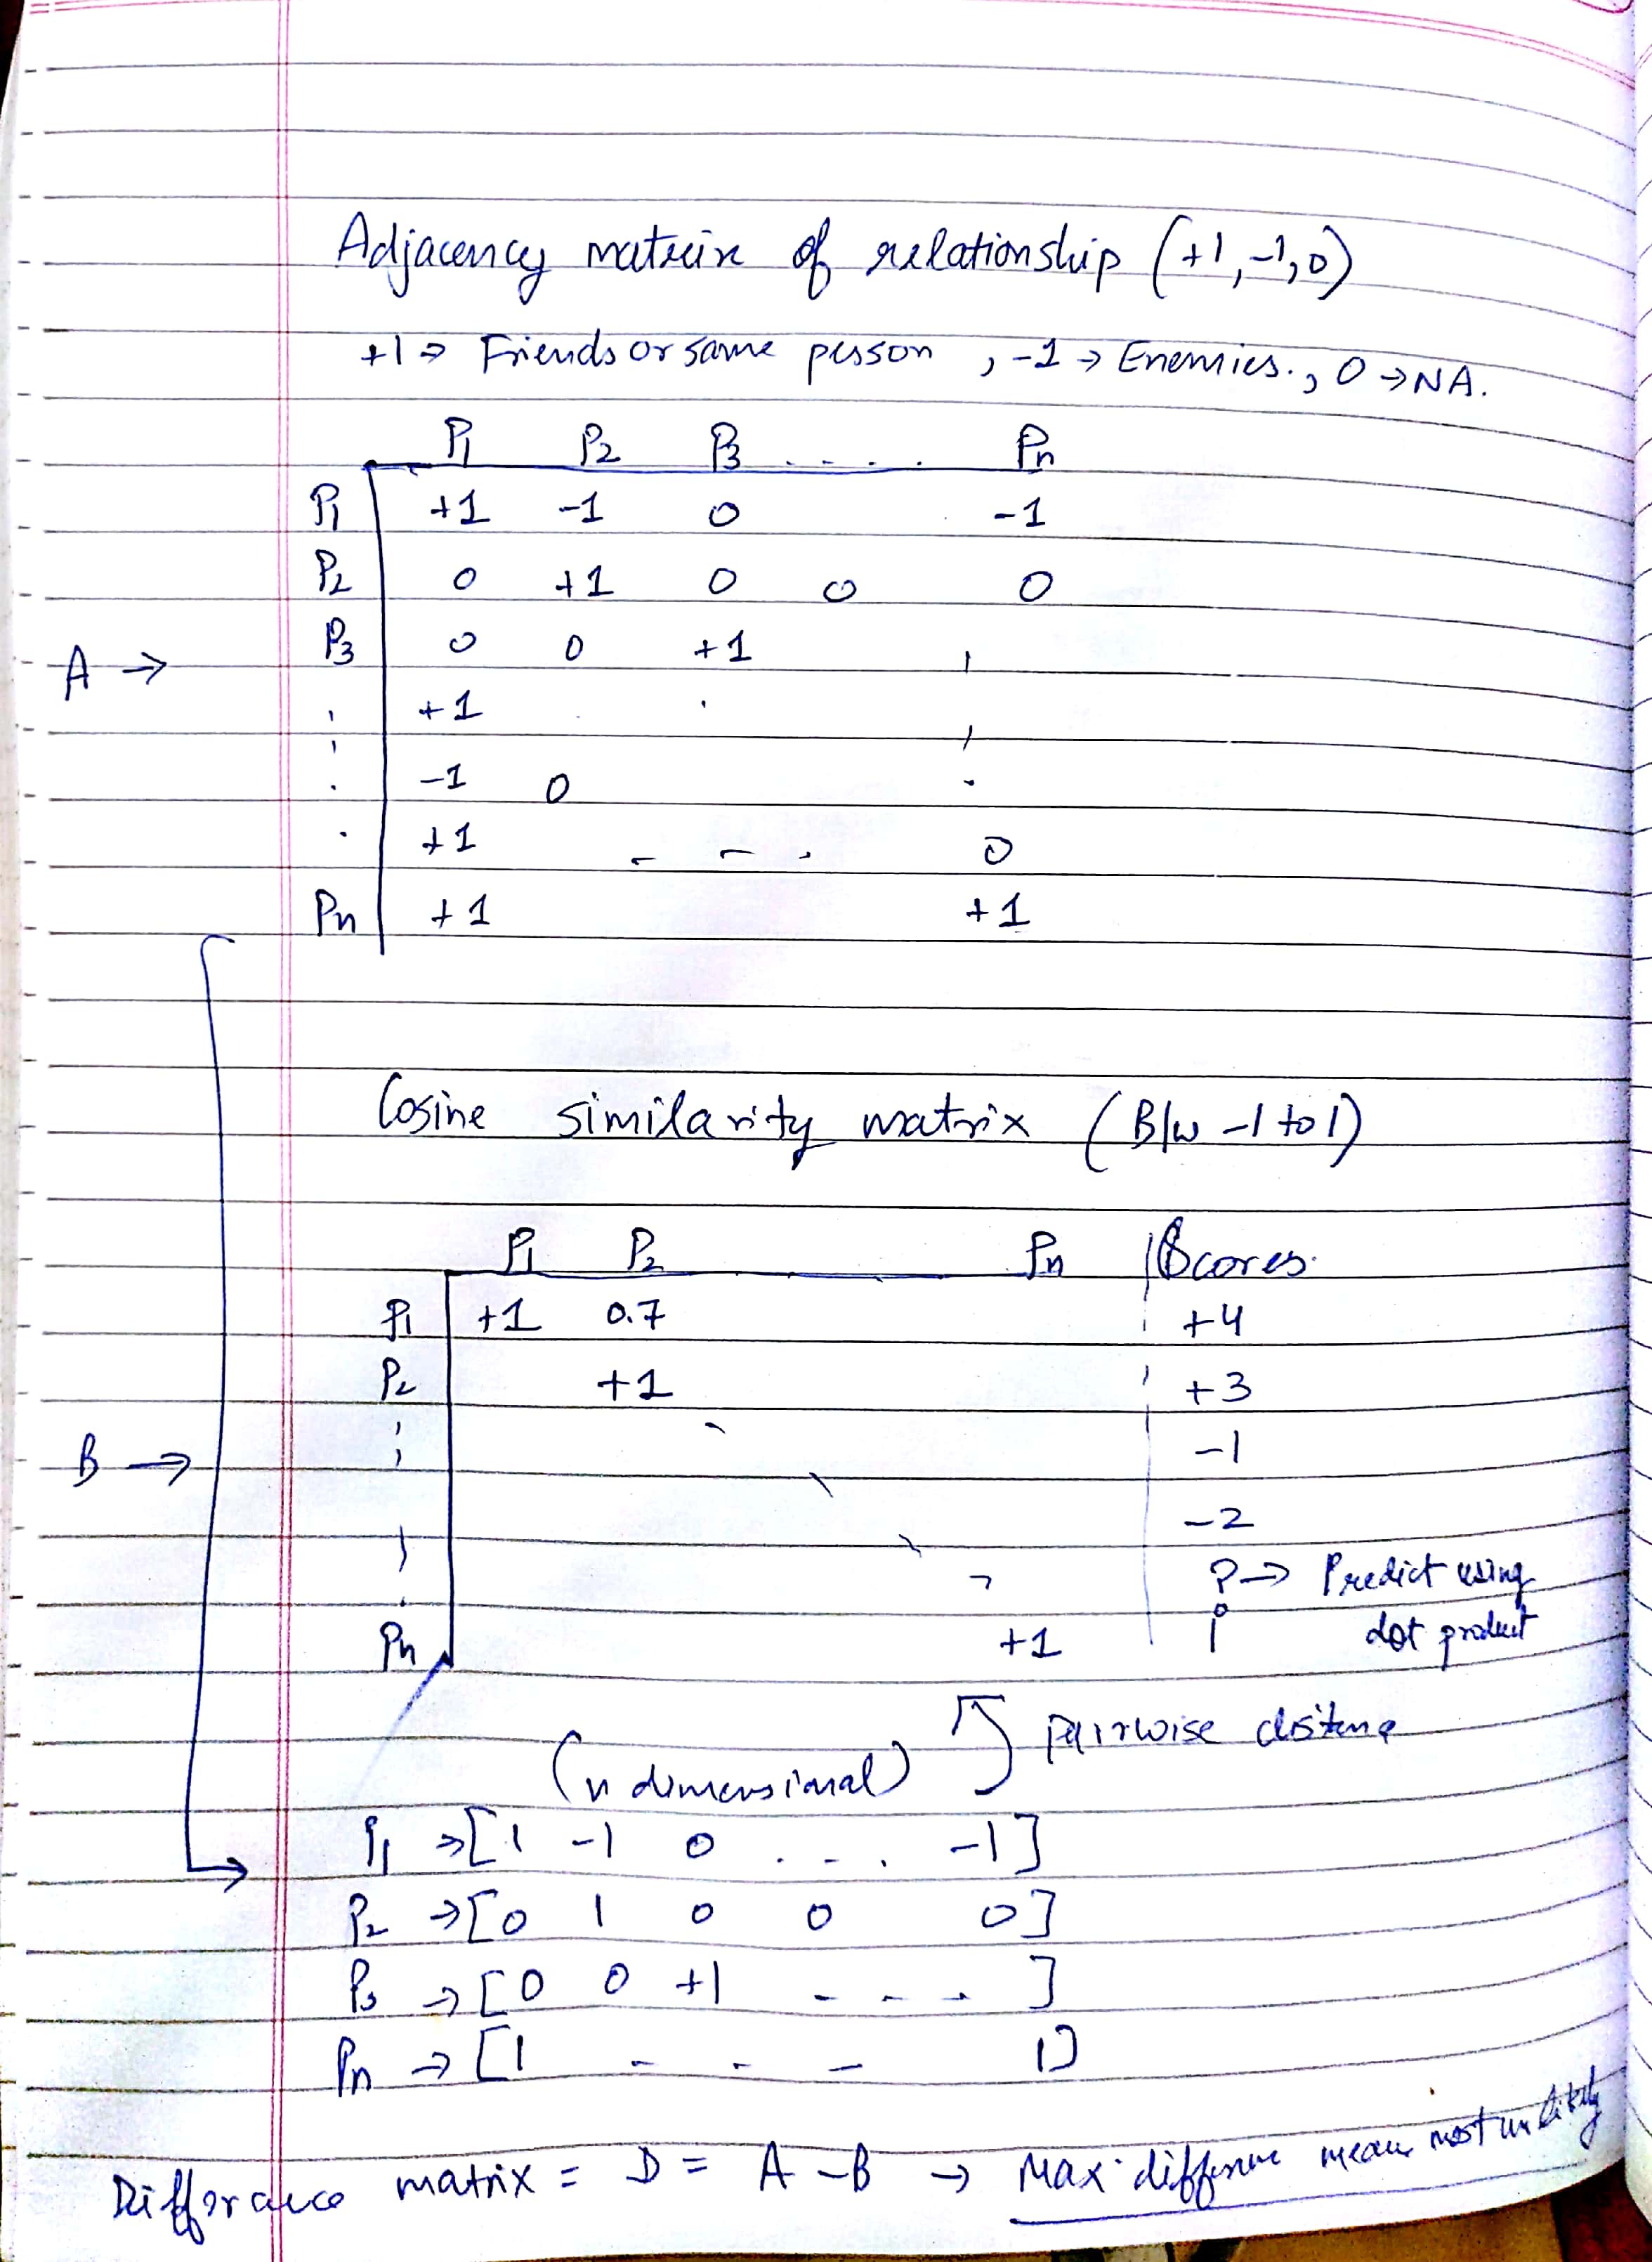 Adjacency matrix of relationship (+1,-1,0)
+1 → Friends or same person , -1 → Enemies., 0 → NA.
P1 P2 P3 .... Pn
P1 +1 -1 0 -1
P2 0 +1 0 0 0
A → P3 0 0 +1
+1
-1 0
+1 - - . 0
Pn +1 +1
Cosine similarity matrix (B/w -1 to 1)
P1 P2 Pn Scores
P1 +1 0.7 +4
P2 +1 +3
B → -1
-2
? → Predict using
Pn +1 dot product
pairwise distance
(n dimensional)
P1 → [1 -1 0 . - . -1]
P2 → [0 1 0 0 0]
P3 → [0 0 +1 - - - ]
Pn → [1 - - - 1]
Difference matrix = D = A - B → Max difference means most unlikely